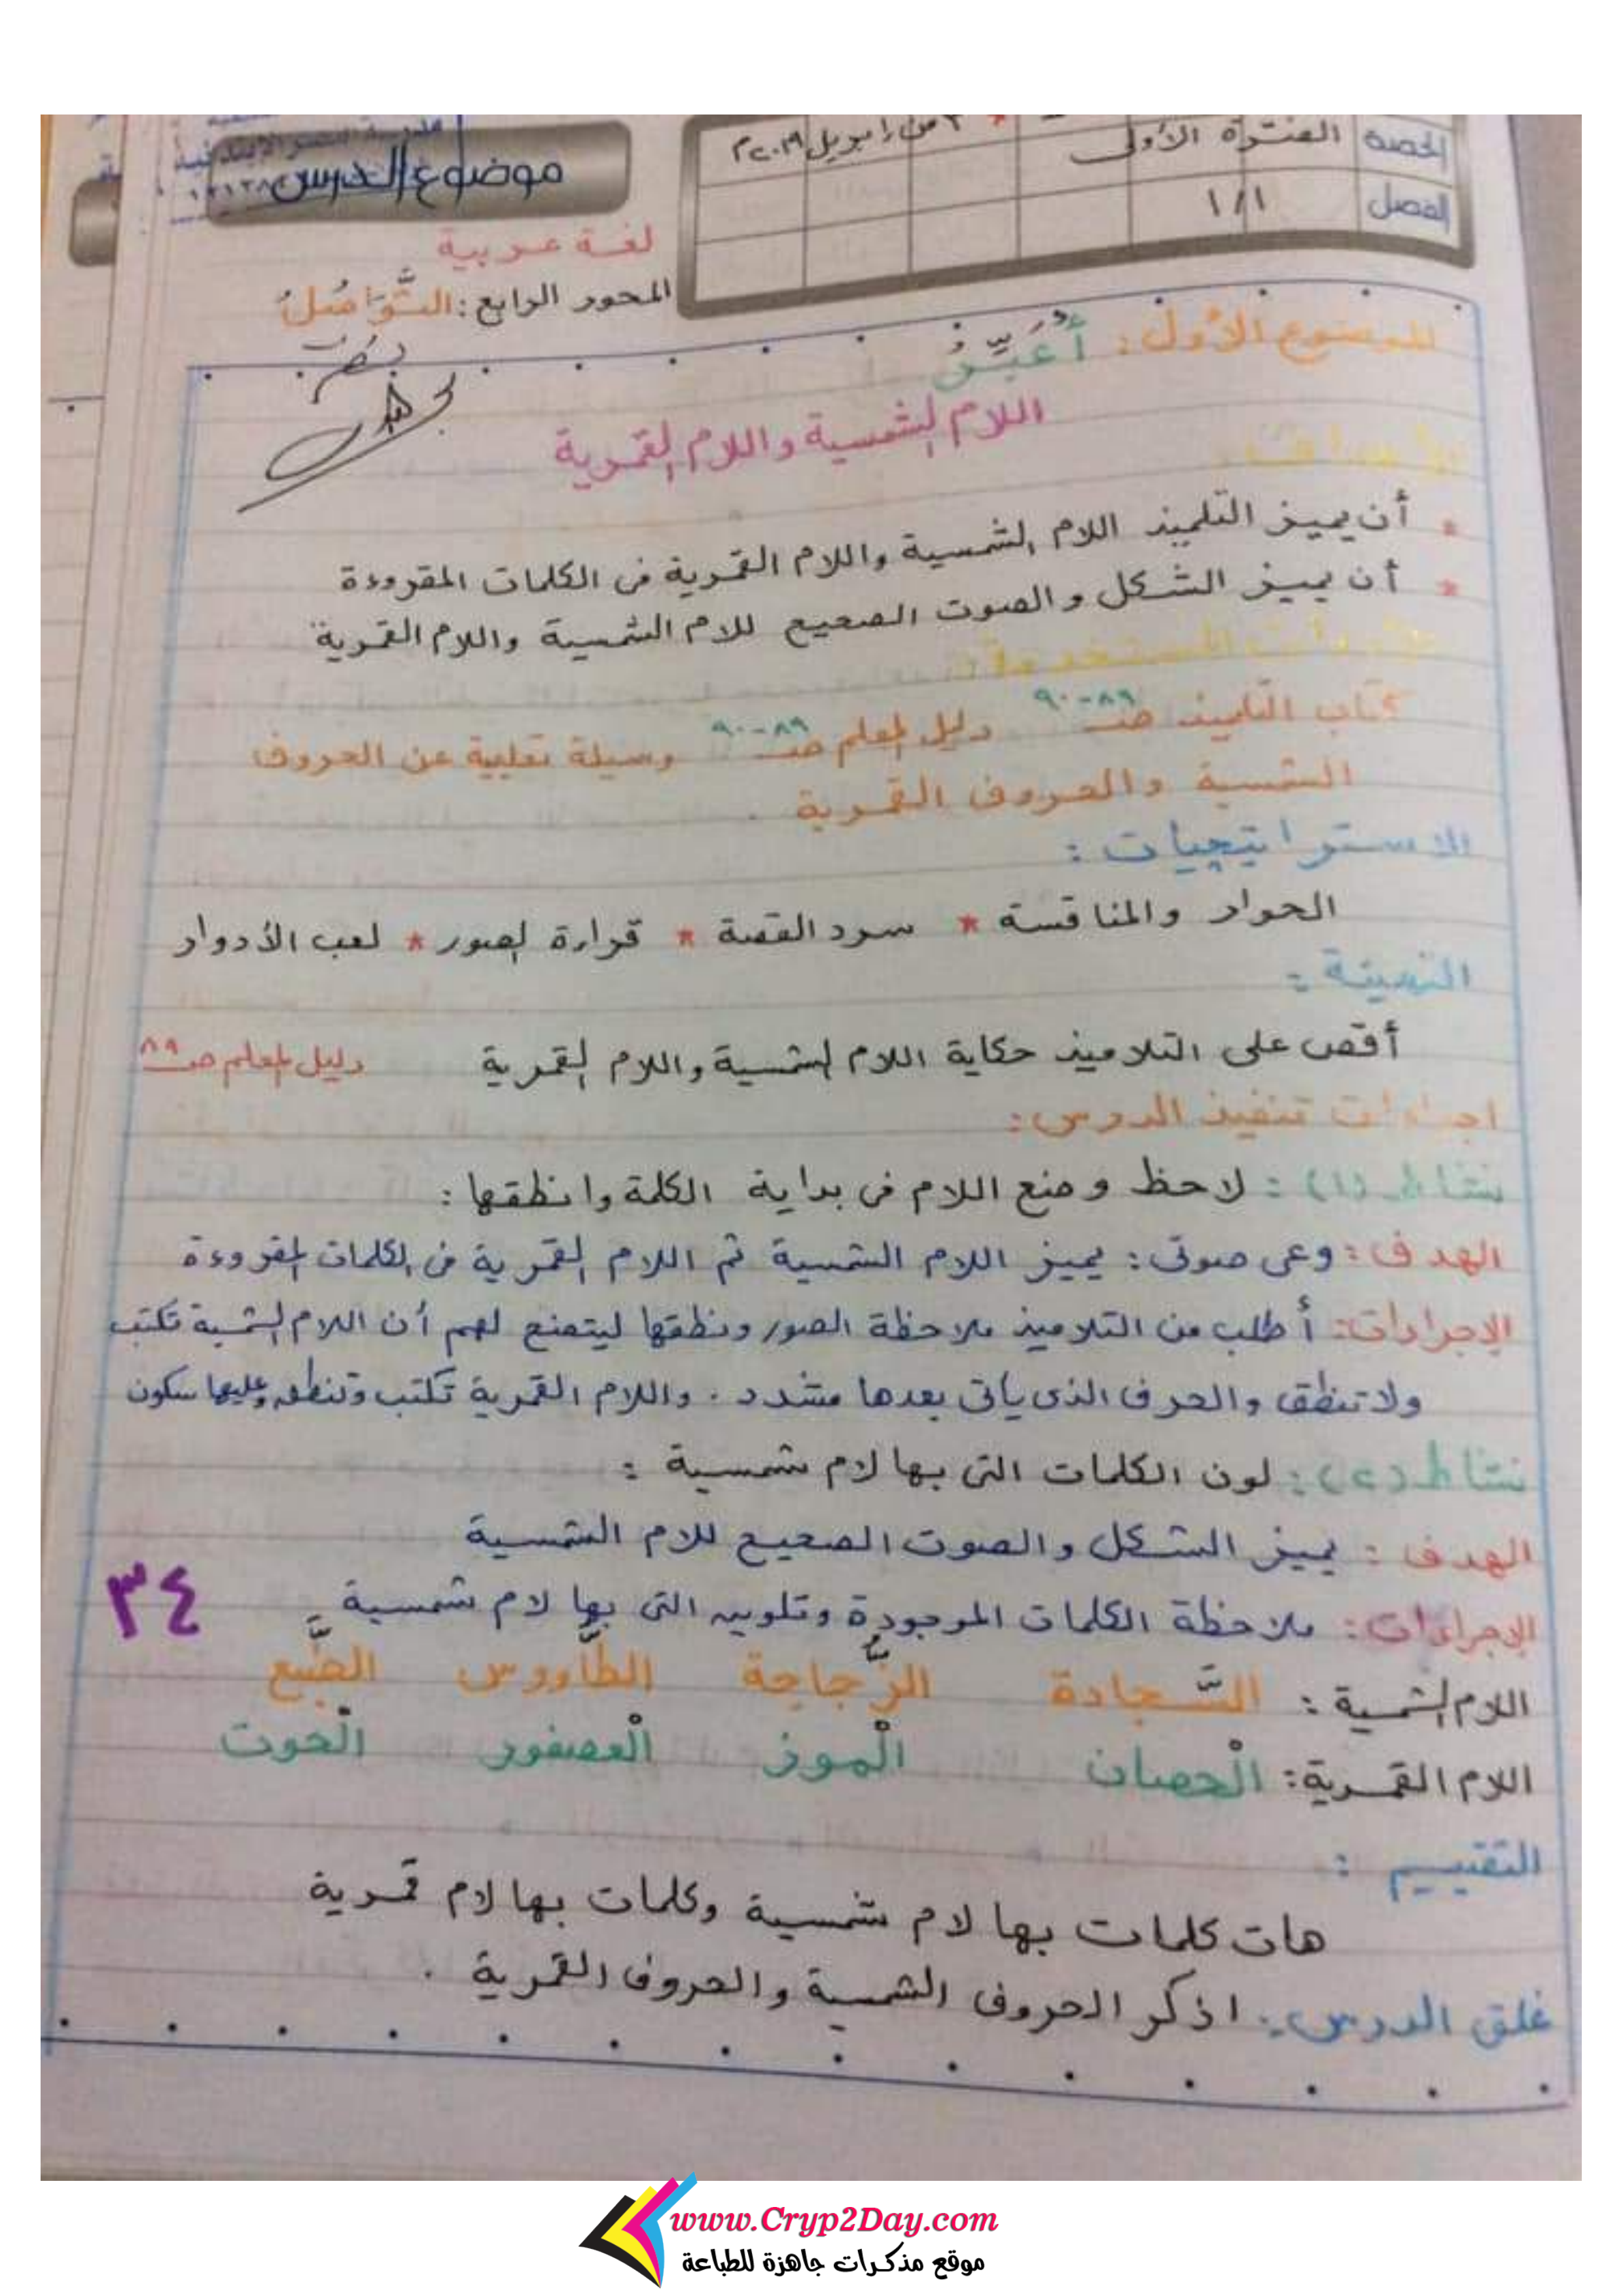 الحصة الفترة الأولى من ابريل ٢٠١٩م
الفصل ١/١
موضوع الدرس
لغة عربية
المحور الرابع: التَّوَاصُلُ
الموضوع الأول: أُعَبِّرُ
اللام الشمسية واللام القمرية
* أن يميز التلميذ اللام الشمسية واللام القمرية فى الكلمات المقروءة
* أن يميز الشكل والصوت الصحيح للام الشمسية واللام القمرية
كتاب التلميذ صـ ٨٩-٩٠ دليل المعلم صـ ٨٩-٩٠ وسيلة تعليمية عن الحروف
الشمسية والحروف القمرية .
الاستراتيجيات :
الحوار والمناقشة * سرد القصة * قراءة الصور * لعب الأدوار
التهيئة :
أقص على التلاميذ حكاية اللام الشمسية واللام القمرية دليل المعلم صـ ٨٩
اجراءات تنفيذ الدرس:
نشاط (١) : لاحظ وضع اللام فى بداية الكلمة وانطقها :
الهدف : وعى صوتى : يميز اللام الشمسية ثم اللام القمرية فى الكلمات المقروءة
الإجراءات: أطلب من التلاميذ ملاحظة الصور ونطقها ليتضح لهم أن اللام الشمسية تكتب
ولا تنطق والحرف الذى يأتى بعدها مشدد . واللام القمرية تكتب وتنطق وعليها سكون
نشاط (٢) : لون الكلمات التى بها لام شمسية :
الهدف : يميز الشكل والصوت الصحيح للام الشمسية
الإجراءات : ملاحظة الكلمات الموجودة وتلوين التى بها لام شمسية
٣٤
اللام الشمسية : السَّجادة الزُّجاجة الطَّاووس الضَّبع
اللام القمرية: الْحصان الْموز الْعصفور الْحوت
التقييم :
هات كلمات بها لام شمسية وكلمات بها لام قمرية
غلق الدرس : اذكر الحروف الشمسية والحروف القمرية .
www.Cryp2Day.com
موقع مذكرات جاهزة للطباعة